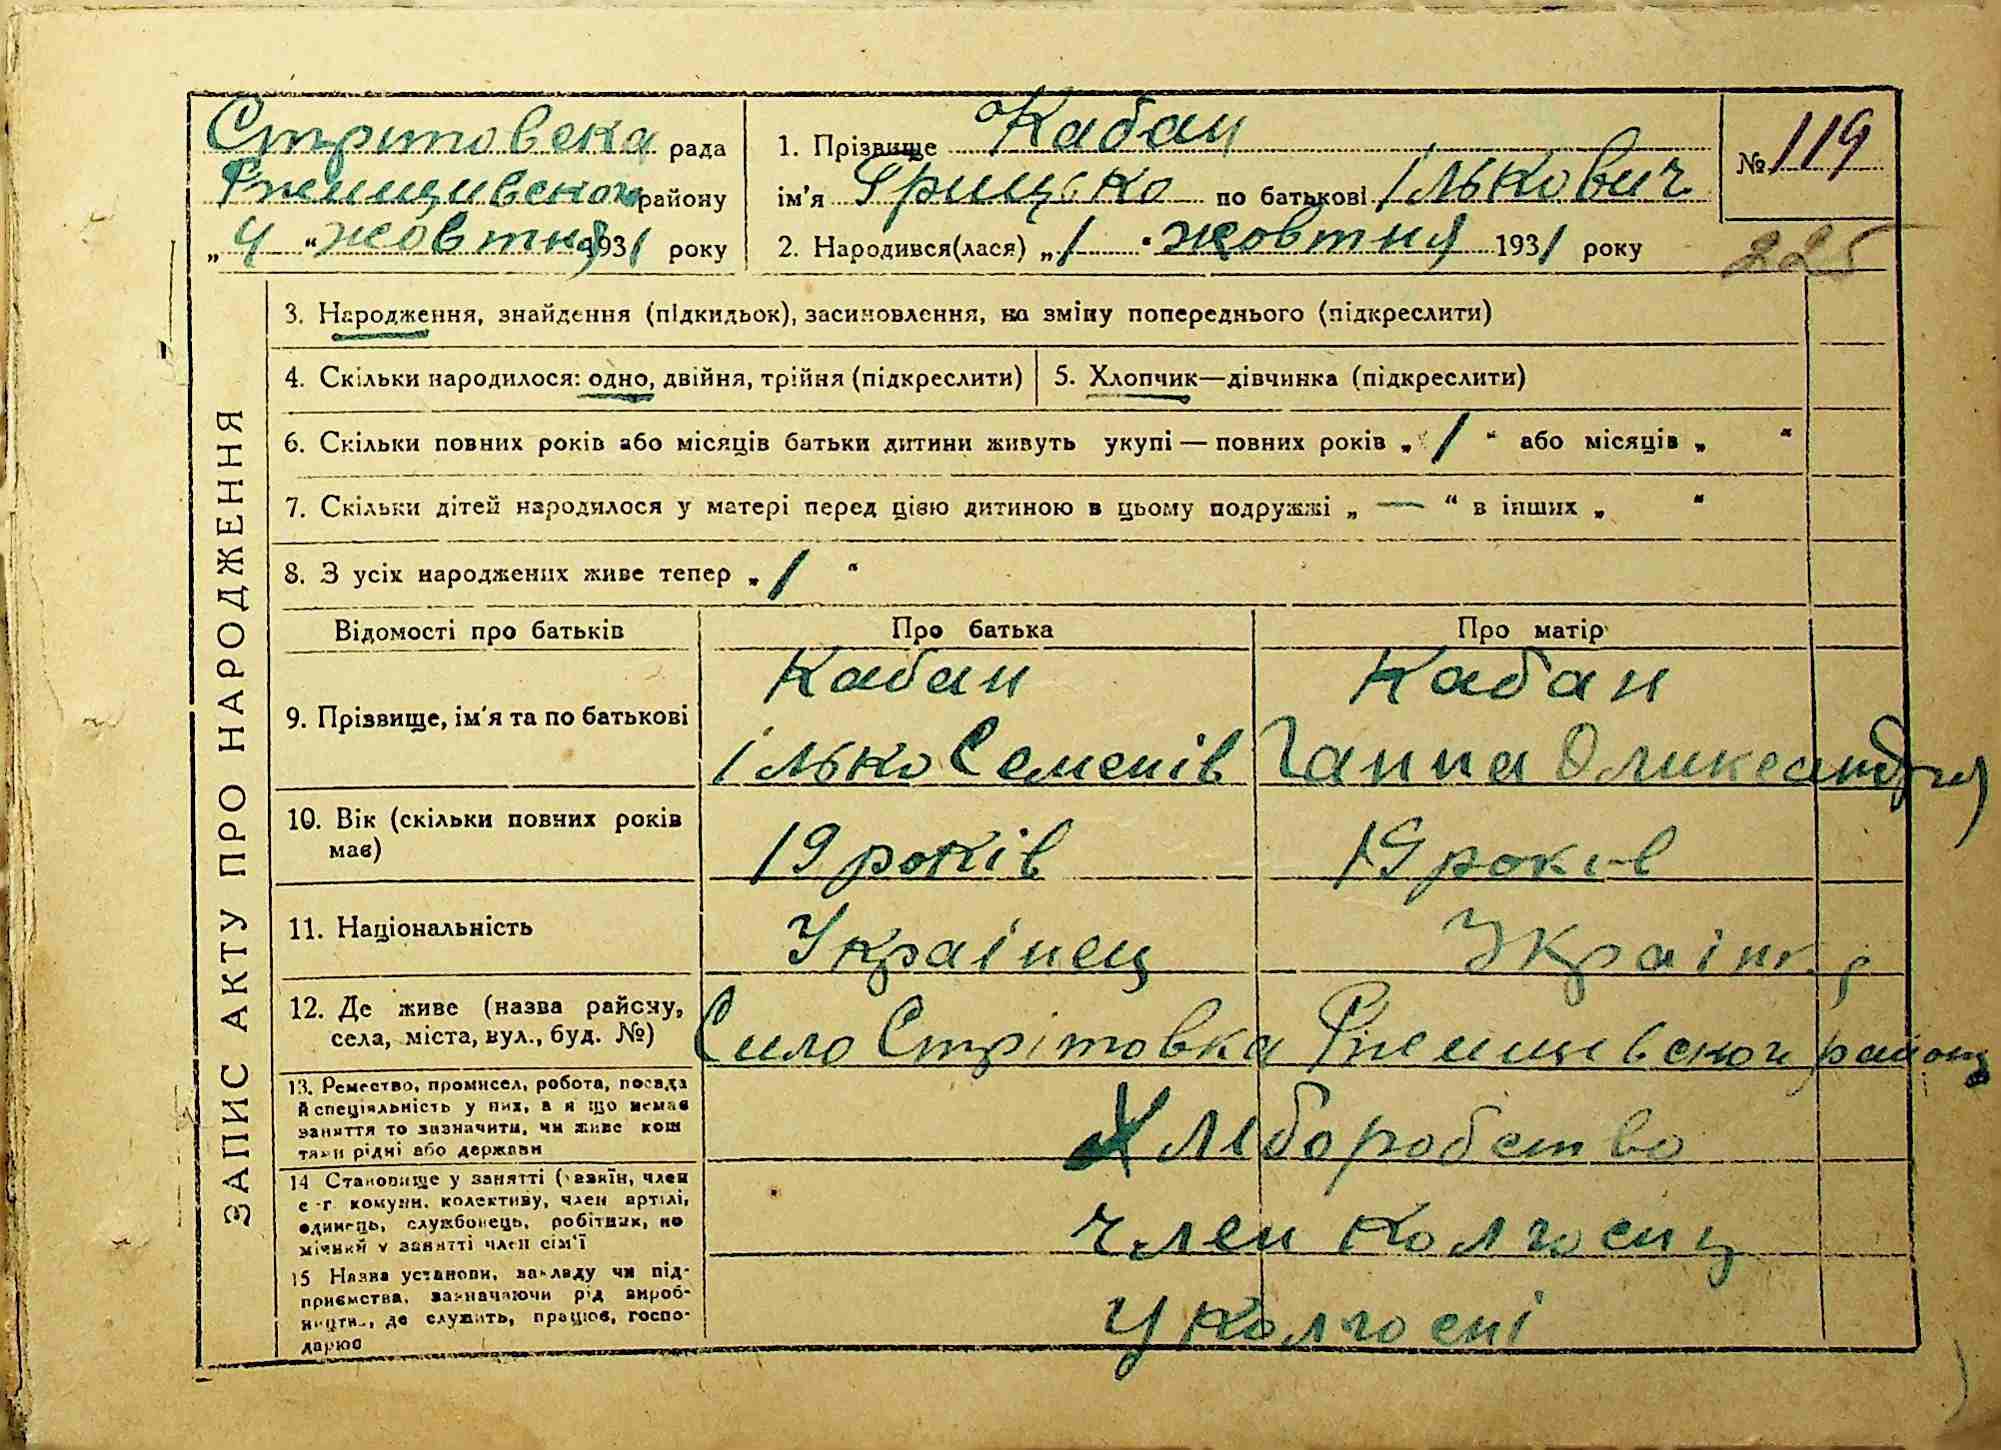 Стрітовска рада
Ржищивскои району
„4“ жовтня 1931 року
1. Прізвище Кабан
ім'я Грицько по батькові Ількович
2. Народився(лася) „1“ жовтня 1931 року
№ 119
225
ЗАПИС АКТУ ПРО НАРОДЖЕННЯ
3. Народження, знайдення (підкидьок), засиновлення, на зміну попереднього (підкреслити)
4. Скільки народилося: одно, двійня, трійня (підкреслити)
5. Хлопчик—дівчинка (підкреслити)
6. Скільки повних років або місяців батьки дитини живуть укупі — повних років „1“ або місяців „ “
7. Скільки дітей народилося у матері перед цією дитиною в цьому подружжі „—“ в інших „ “
8. З усіх народжених живе тепер „1“
Відомості про батьків Про батька Про матір
9. Прізвище, ім'я та по батькові
Кабан
Ілько Семенів
Кабан
Ганна
10. Вік (скільки повних років
має)
19 років
19 років
11. Національність
Украінец
Украінка
12. Де живе (назва району,
села, міста, вул., буд. №)
Сило Стрітовка Ржищевскои району
13. Ремество, промисел, робота, посада
й спеціяльність у них, а я що немає
заняття то зазначити, чи живе кош
тами рідні або держави
Хліборобство
14 Становище у занятті (хазяїн, член
с-г комуни, колективу, член артілі,
одинець, службовець, робітник, по
мічний у занятті член сім'ї
член колгоспу
15 Назва установи, закладу чи під-
приємства, зазначаючи рід вироб-
ництва, де служить, працює, госпо-
дарює
у колгоспі